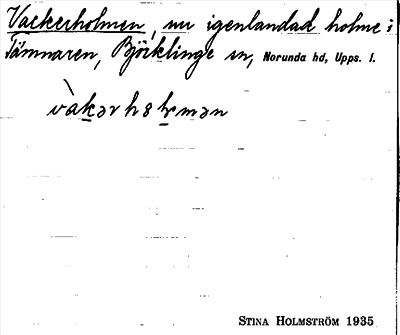 Vackerholmen, nu igenlandad holme i
Tämnaren, Björklinge sn, Norunda hd, Upps. l.
vàkərh 8 lrmən
STINA HOLMSTRÖM 1935